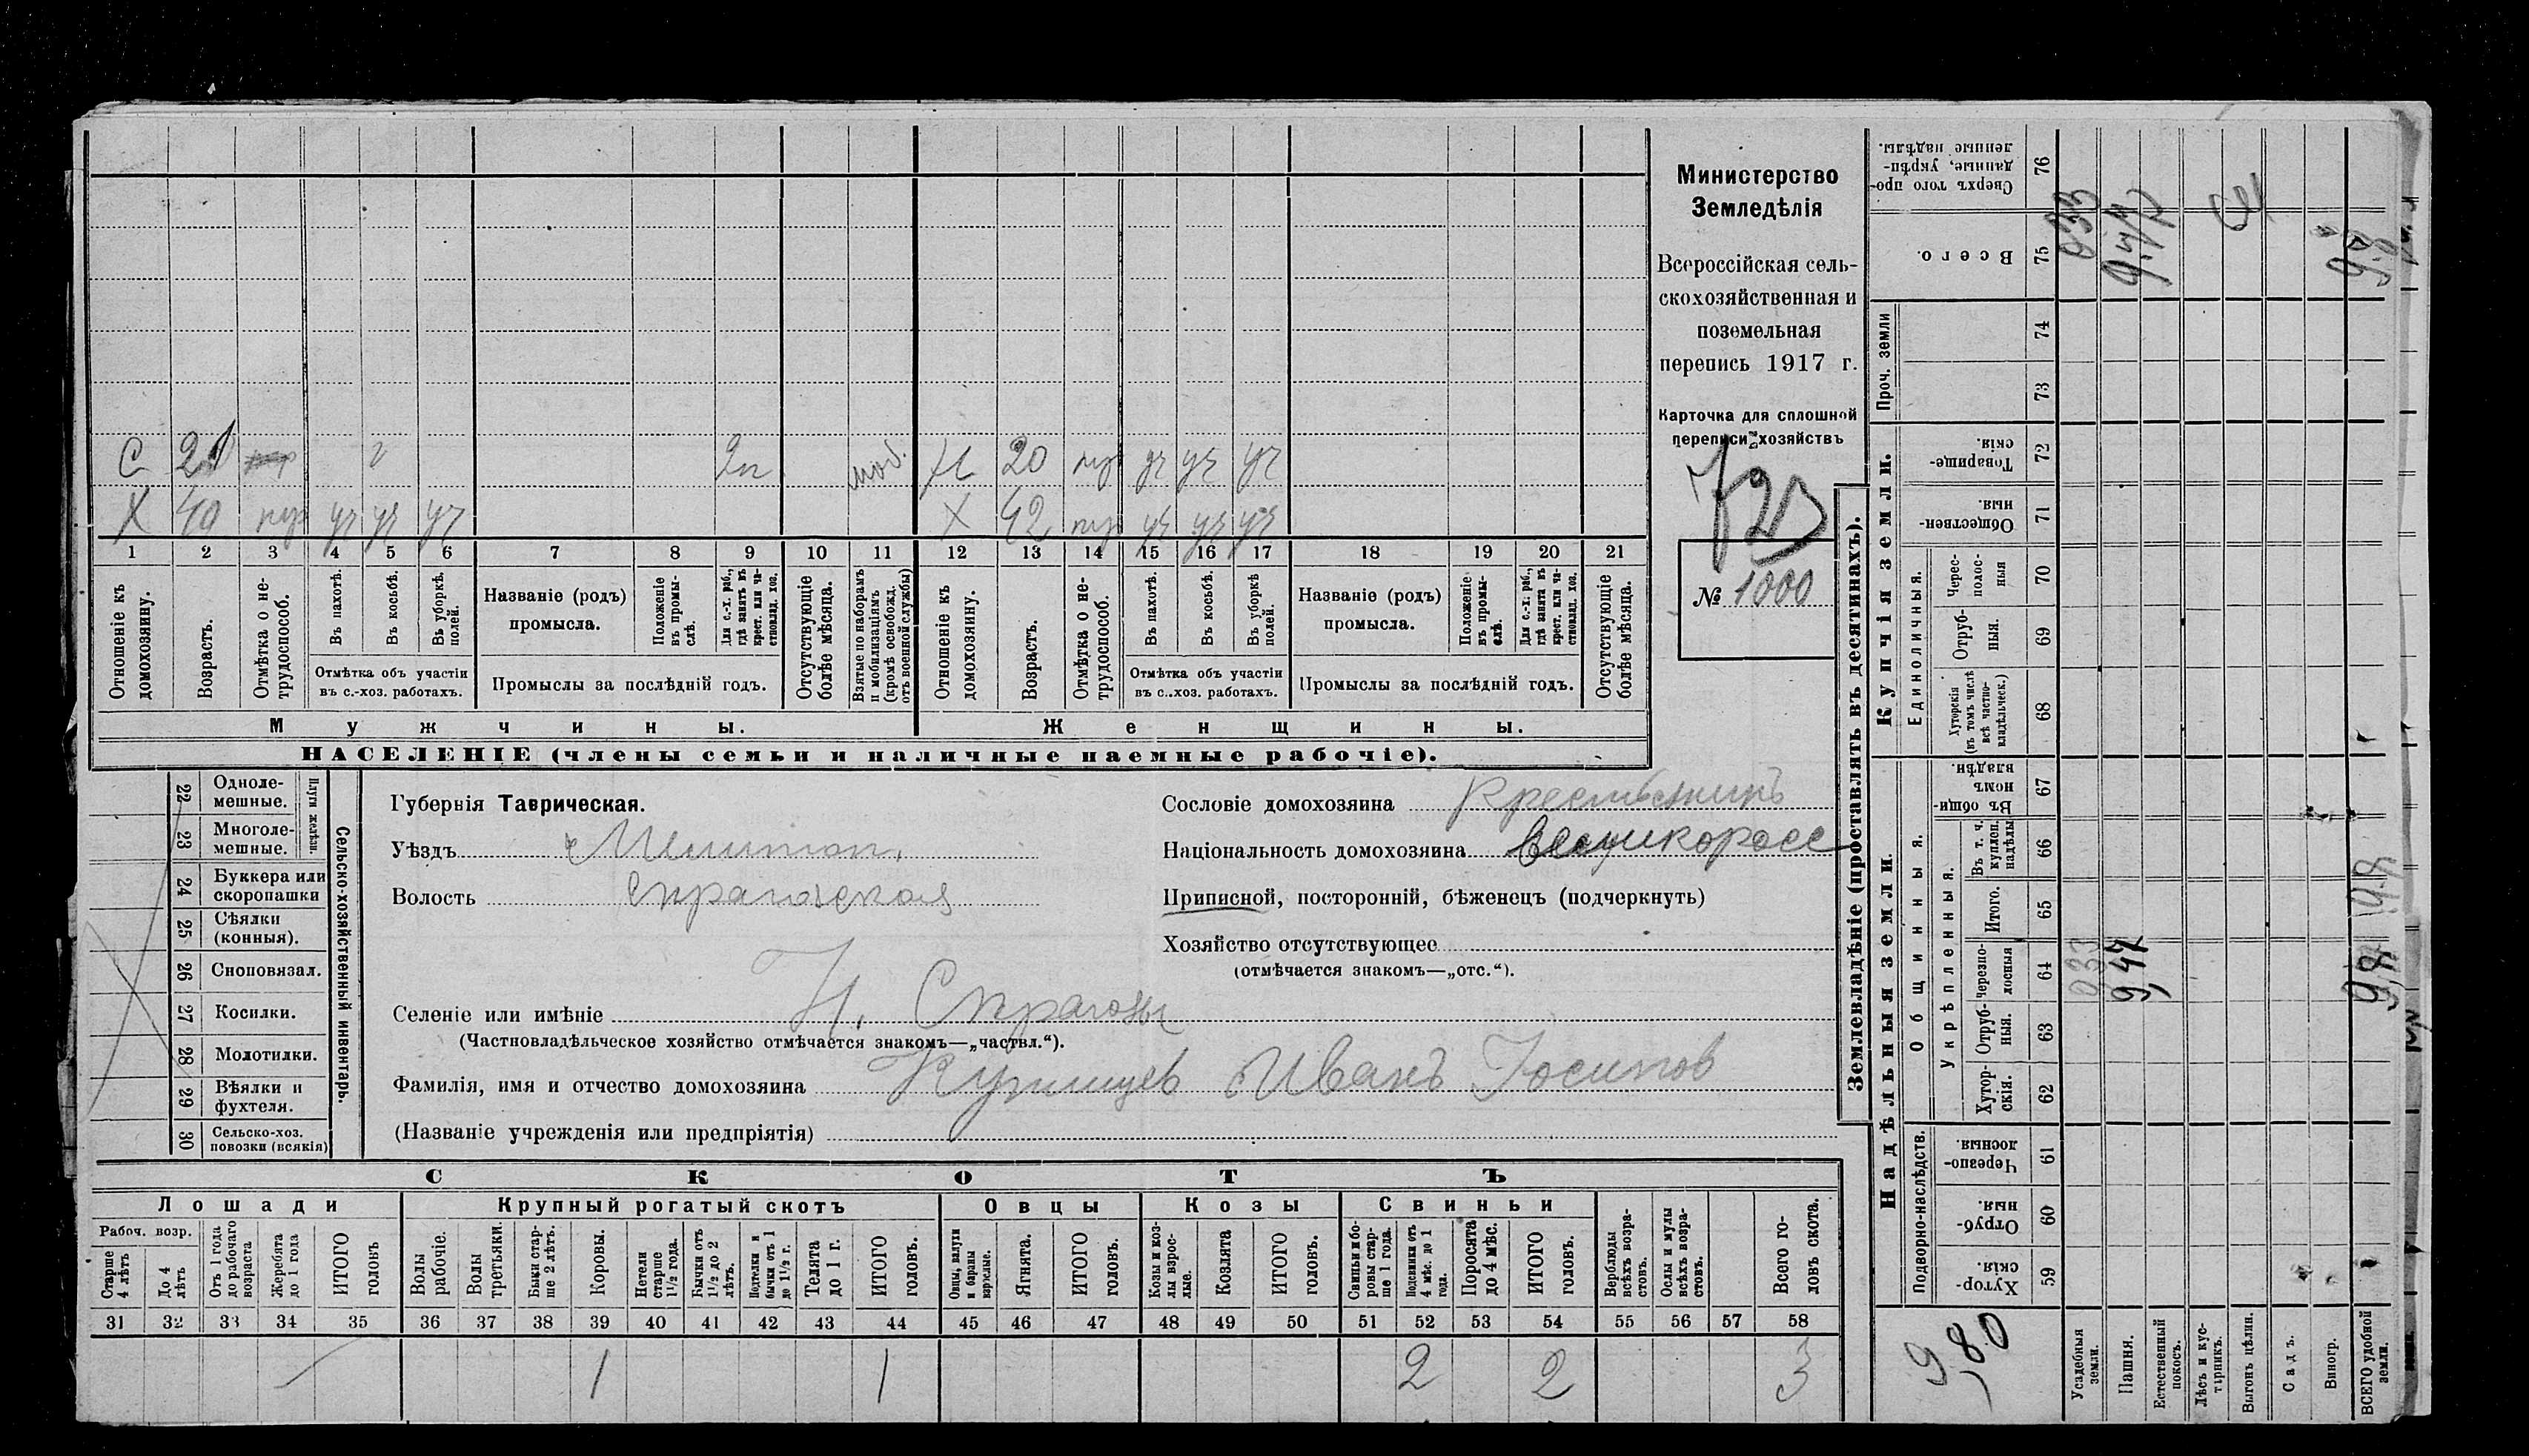 С 21 2п моб. Н 20 нтр уч уч уч
Х 49 нтр уч уч уч Х 42 нтр уч уч уч
1 2 3 4 5 6 7 8 9 10 11 12 13 14 15 16 17 18 19 20 21
Отношеніе къ домохозяину.
Возрастъ.
Отмѣтка о нетрудоспособ.
Въ пахотѣ.
Въ косьбѣ.
Въ уборкѣ полей.
Отмѣтка объ участіи
въ с.-хоз. работахъ.
Названіе (родъ)
промысла.
Положеніе въ промыслѣ.
Для с.-х. раб., гдѣ занятъ въ крест. или частновлад. хоз.
Промыслы за послѣдній годъ.
Отсутствующіе болѣе мѣсяца.
Взятые по наборамъ и мобилизаціямъ (кромѣ освобожд. отъ военной службы)
Отношеніе къ домохозяину.
Возрастъ.
Отмѣтка о нетрудоспособ.
Въ пахотѣ.
Въ косьбѣ.
Въ уборкѣ полей.
Отмѣтка объ участіи
въ с..хоз. работахъ.
Названіе (родъ)
промысла.
Положеніе въ промыслѣ.
Для с.-х. раб., гдѣ занята въ крест. или частновлад. хоз.
Промыслы за послѣдній годъ.
Отсутствующіе болѣе мѣсяца.
Мужчины. Женщины.
НАСЕЛЕНІЕ (члены семьи и наличные наемные рабочіе).
Министерство
Земледѣлія
Всероссійская сель-
скохозяйственная и
поземельная
перепись 1917 г.
Карточка для сплошной
переписи хозяйствъ
№ 1000
22 Одноле-
мешные.
23 Многоле-
мешные.
Плуги желѣзн.
24 Буккера или
скоропашки
25 Сѣялки
(конныя).
26 Сноповязал.
27 Косилки.
28 Молотилки.
29 Вѣялки и
фухтеля.
30 Сельско-хоз.
повозки (всякія)
Сельско-хозяйственный инвентарь.
Губернія Таврическая.
Уѣздъ Мелитоп.
Волость
Селеніе или имѣніе Н.
(Частновладѣльческое хозяйство отмѣчается знакомъ—„частвл.“).
Фамилія, имя и отчество домохозяина Иванъ Іосипов
(Названіе учрежденія или предпріятія)
Сословіе домохозяина Крестьянинъ
Національность домохозяина великоросс
Приписной, посторонній, бѣженецъ (подчеркнуть)
Хозяйство отсутствующее
(отмѣчается знакомъ—„отс.“).
СКОТЪ
Лошади Крупный рогатый скотъ Овцы Козы Свиньи
Рабоч. возр.
Старше 4 лѣтъ
До 4 лѣтъ
Отъ 1 года до рабочаго возраста
Жеребята до 1 года
ИТОГО головъ
Волы рабочіе.
Волы третьяки.
Быки старше 2 лѣтъ.
Коровы.
Нетели старше 1½ года.
Бычки отъ 1½ до 2 лѣтъ.
Нетелки и бычки отъ 1 до 1½ г.
Телята до 1 г.
ИТОГО головъ.
Овцы, валухи и бараны взрослые.
Ягнята.
ИТОГО головъ.
Козы и козлы взрослые.
Козлята
ИТОГО головъ.
Свиньи и боровы старше 1 года.
Подсвинки отъ 4 мѣс. до 1 года.
Поросята до 4 мѣс.
ИТОГО головъ.
Верблюды всѣхъ возрастовъ.
Ослы и мулы всѣхъ возрастовъ.
Всего головъ скота.
31 32 33 34 35 36 37 38 39 40 41 42 43 44 45 46 47 48 49 50 51 52 53 54 55 56 57 58
1 1 2 2 3
Землевладѣніе (проставлять въ десятинахъ).
Надѣльныя земли. Купчія земли.
Подворно-наслѣдств.
Общинныя.
Укрѣпленныя.
Единоличныя.
Проч. земли
Хуторскія. 59
Отрубныя. 60
Черезполосныя. 61
Хуторскія. 62
Отрубныя. 63
Черезполосныя 64
Итого. 65
Въ т. ч. куплен. надѣлы 66
Въ общинномъ владѣн. 67
Хуторскія (въ томъ числѣ всѣ частновладѣльческ.) 68
Отрубныя. 69
Череcполосныя 70
Общественныя. 71
Товарищескія. 72
73
74
Всего. 75
Сверхъ того проданные, укрѣпленные надѣлы. 76
9,80
Усадебныя земли. 033 033
Пашня. 9,47 9.47
Естественный покосъ.
Лѣсъ и кустарникъ.
Выгонъ цѣлин.
Садъ.
Виногр.
ВСЕГО удобной земли. 9,8 9.8